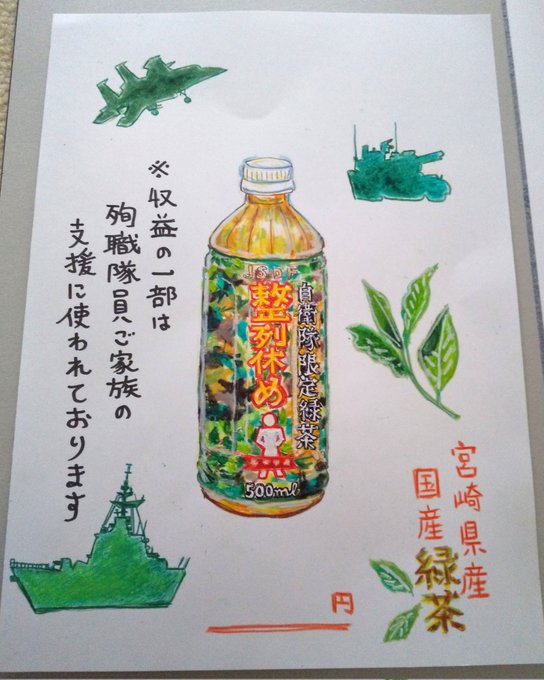 ※収益の一部は
殉職隊員ご家族の
支援に使われております
JSDF
自衛隊限定緑茶
整列休め
500ml
宮崎県産
国産緑茶
円